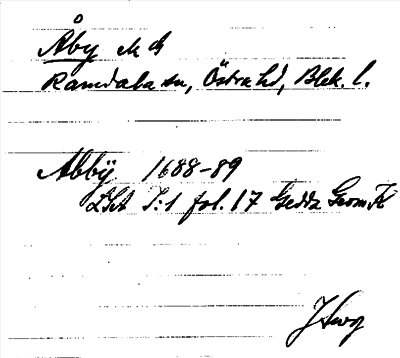 Åby
Ramdala sn, Östra hd, Blek. l.
Abbÿ 1688-89
LSA I:1 fol. 17 Gedda Geom. K